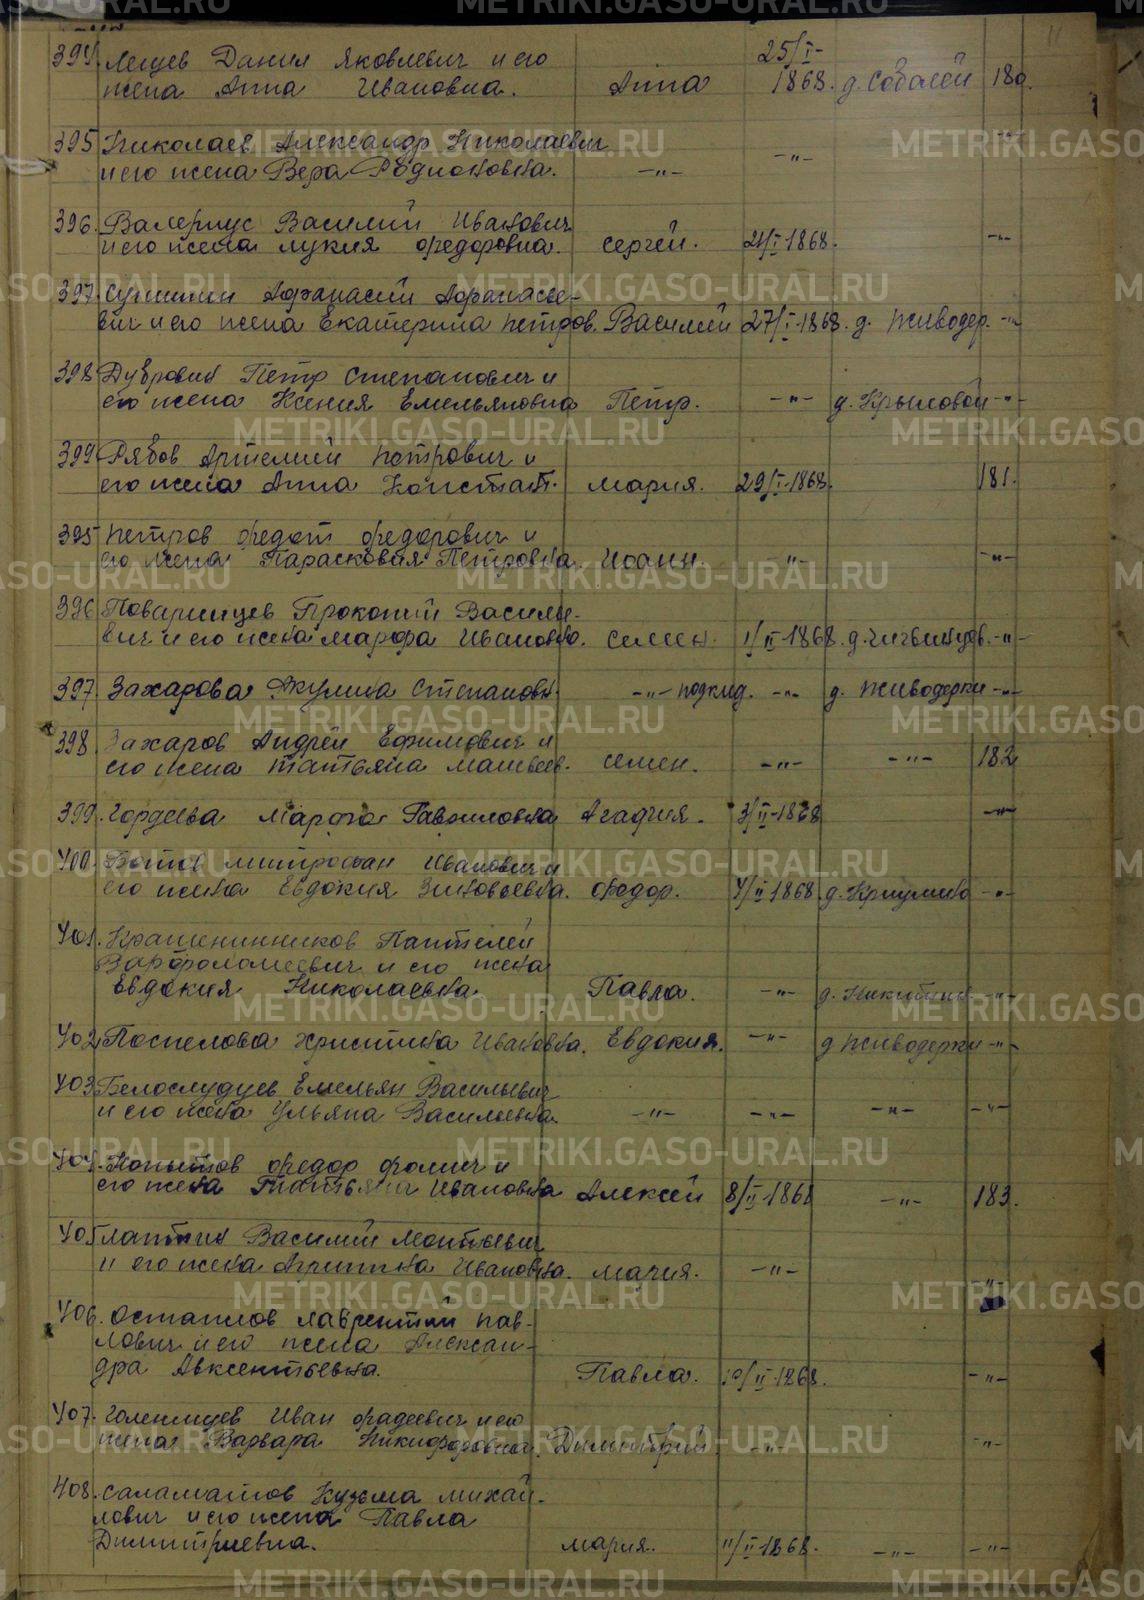 11
394. Лещев Данил Яковлевич и его
жена Анна Ивановна. Анна 25/I-1868. д. Соболей 180.
395 Николаев Александр Николаевич
и его жена Вера Родионовна. -"- -"- -"-
396. Валериус Василий Иванович
и его жена Лукия Федоровна. Сергей. 24/I-1868. -"-
397. Афанасий Афанасье-
вич и его жена Екатерина Петров. Василий 27/I-1868. д. Живодер. -"-
398 Дубровин Петр Степанович и
его жена Ксения Емельяновна Петр. -"- д. Крыловой -"-
399 Рябов Артемий Петрович и
его жена Анна Констант. Мария. 29/I-1868. 181.
395 Петров Федот Федорович и
его жена Парасковия Петровна. Иоанн. -"- -"-
396 Поваринцев Прокопий Василье-
вич и его жена Марфа Ивановна. Семен. 1/II-1868. д. Чигвинцев. -"-
397. Захарова Акулина Степановн. -"- подкид. -"- д. Живодерки -"-
398 Захаров Андрей Ефимович и
его жена Татьяна Матвеев. Семен. -"- -"- 182
399. Гордеева Марфа Гавриловна Агафия. 3/II-1868 -"-
400. Митрофан Иванович и
его жена Евдокия Зиновьевна. Федор. 4/II 1868 д. -"-
401. Крашенинников Пантелей
Варфоломеевич и его жена
Евдокия Николаевна Павла. -"- д. Никитина -"-
402. Поспелова Христина Ивановна. Евдокия. -"- д Живодерки -"-
403 Белослудцев Емельян Васильевич
и его жена Ульяна Васильевна -"- -"- -"- -"-
404. Копытов Федор Фомич и
его жена Татьяна Ивановна Алексей 8/II-1868 -"- 183.
405 Лаптин Василий Леонтьевич
и его жена Агрипина Ивановна. Мария. -"- -"-
406. Остапов Лаврентий Пав-
лович и его жена Алексан-
дра Авксентьевна. Павла. 10/II-1868. -"-
407. Голенищев Иван Фадеевич и его
жена Варвара Никифоровна. Димитрий. -"- -"-
408. Саламатов Кузьма Михай-
лович и его жена Павла
Димитриевна. Мария. 11/II-1868. -"- -"-
METRIKI.GASO-URAL.RU